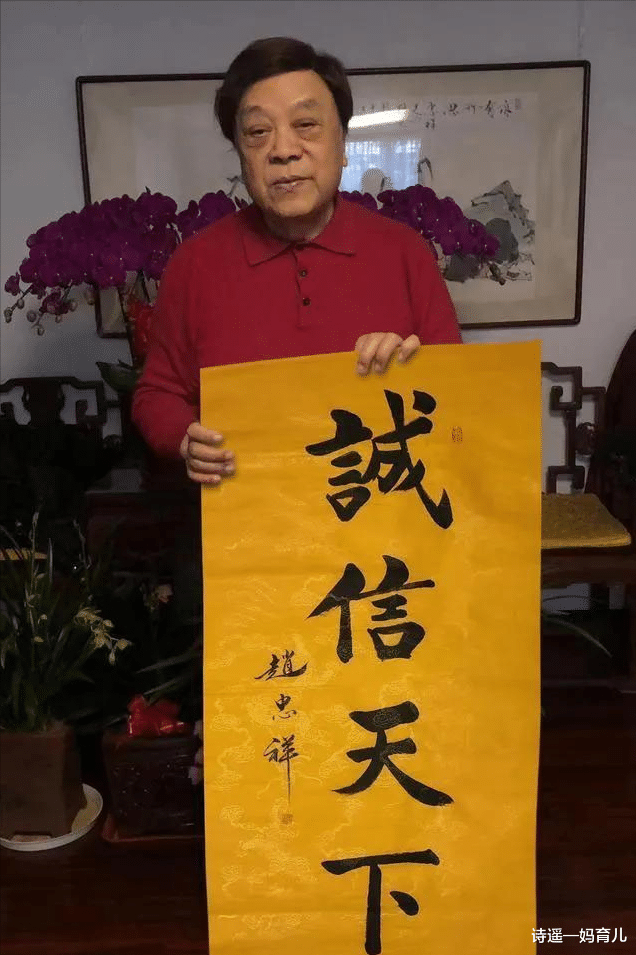 誠信天下
趙忠祥
诗遥一妈育儿